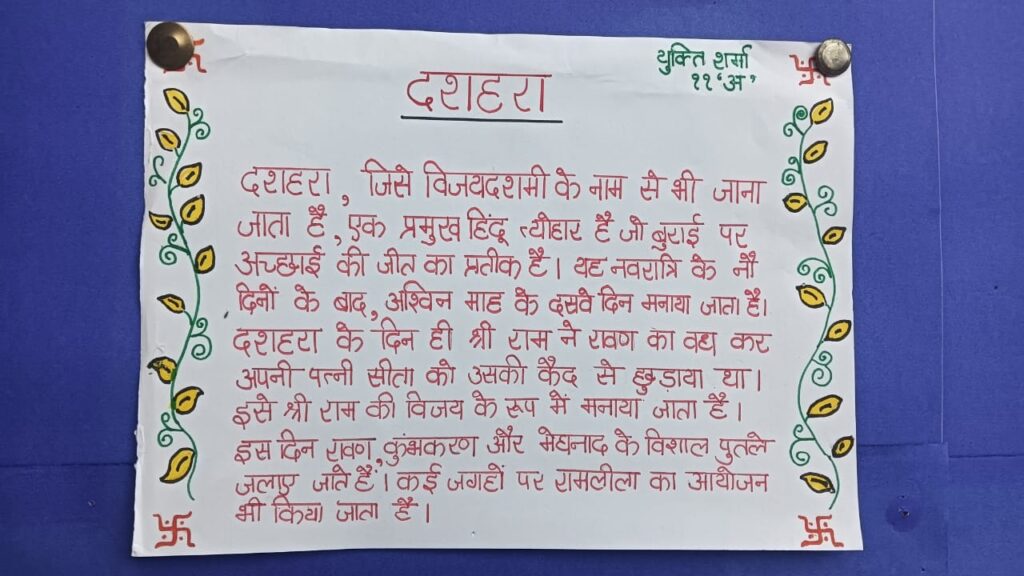 युक्ति शर्मा
११ 'अ'
दशहरा
दशहरा, जिसे विजयदशमी के नाम से भी जाना
जाता है, एक प्रमुख हिंदू त्योहार है जो बुराई पर
अच्छाई की जीत का प्रतीक है। यह नवरात्रि के नौ
दिनों के बाद, अश्विन माह के दसवे दिन मनाया जाता है।
दशहरा के दिन ही श्री राम ने रावण का वध कर
अपनी पत्नी सीता को उसकी कैद से छुड़ाया था।
इसे श्री राम की विजय के रूप में मनाया जाता है।
इस दिन रावण, कुंभकरण और मेघनाद के विशाल पुतले
जलाए जाते हैं। कई जगहों पर रामलीला का आयोजन
भी किया जाता है।